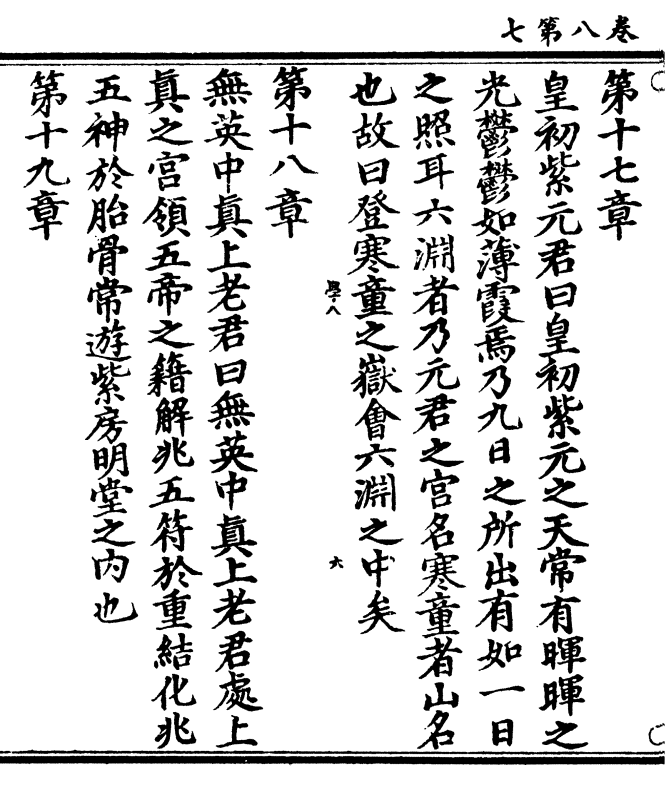 卷八第七
第十七章
皇初紫元君曰皇初紫元之天常有暉暉之
光鬱鬱如薄霞焉乃九日之所出有如一日
之照耳六淵者乃元君之宮名寒童者山名
也故曰登寒童之嶽會六淵之中矣
六
第十八章
無英中真上老君曰無英中真上老君處上
真之宮領五帝之籍解兆五符於重結化兆
五神於胎骨常遊紫房明堂之內也
第十九章